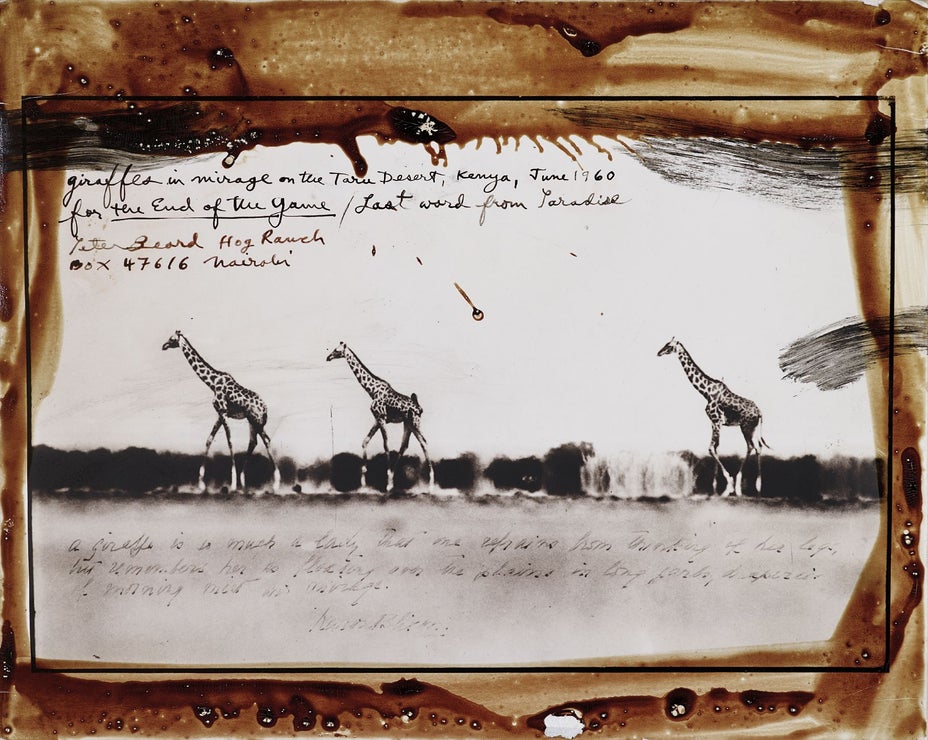 giraffes in mirage on the Taru Desert, Kenya, June 1960
for the End of the Game / Last word from Paradise
Peter Beard Hog Ranch
Box 47616 Nairobi
a giraffe is so much a lady that one refrains from thinking of her legs,
but remembers her as floating over the plains in long garbs, draperies
of morning mist or mirage.